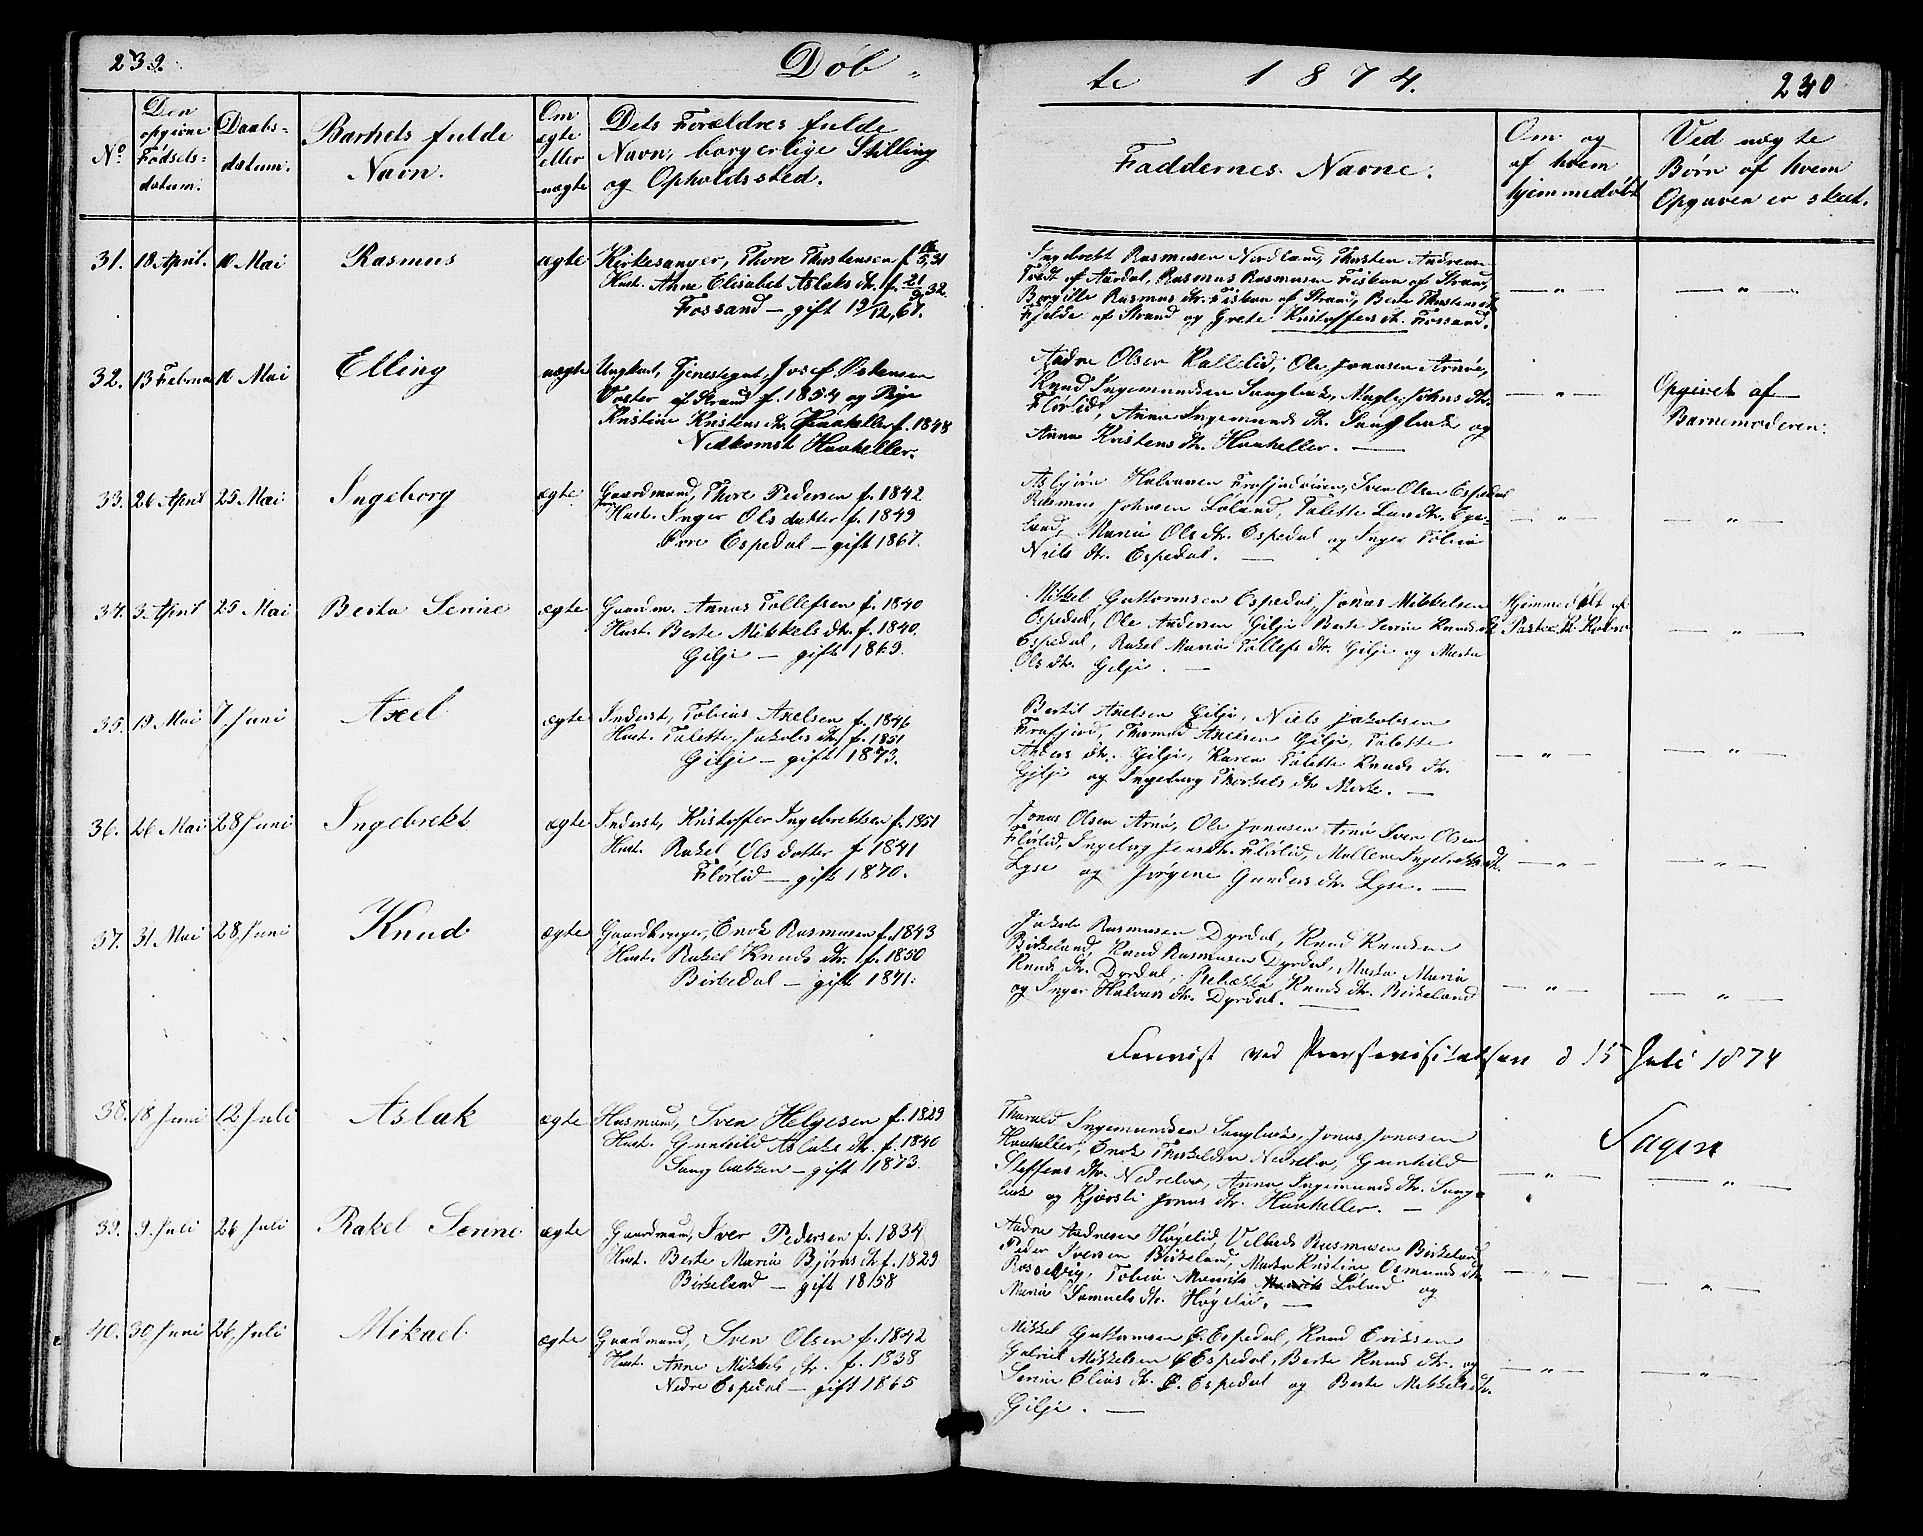 239.
Döb-
te 1874.
240
No
Den opgivne Fødsels-datum.
Daabs-datum.
Barnets fulde Navn.
Om ægte eller uægte
Dets Forældres fulde Navn, borgerlige Stilling og Opholdssted.
Faddernes Navne.
Om og af hvem hjemmedöbt
Ved uægte Børn af hvem Opgaven er skeet.
31. 18 April. 10 Mai Rasmus ægte Kirkesanger, Thore Thorstensen f. 31
Hust. Anne Elisabet Aslaks dtr. f. 21/9 32.
Fossand — gift 19/12, 67.
Ingebrekt Rasmusen Nordland, Thorsten Andreasen
Tvedt af Aardal, Rasmus Rasmusen Fiskaa af Strand,
Borgille Rasmus dtr. Fiskaa af Strand, Berte Thorstens dtr.
Fjelde af Strand og Grete Kristoffers dtr. Fossand.
— " —
— " —
32. 13 Februar 10 Mai Elling uægte Ungkarl, Tjenestegut, Josef Østensen
af Strand f. 1854 og Pige
Kristine Kristens dtr. Haaheller f. 1848
Nedkomst Haaheller.
Aadne Olsen Kallelid, Ole Jonasen Arnø,
Knud Ingemundsen Sangluke, Johns dtr.
Flörlid, Anna Ingemunds dtr. Sangluke og
Anna Kristens dtr. Haaheller. —
— " —
Opgivet af
Barnemoderen.
33. 26 April 25 Mai Ingeborg ægte Gaardmand, Thore Pedersen f. 1842
Hust. Inger Ols datter f. 1849
Espedal — gift 1867.
Asbjörn Halvorsen Frafjord, Sven Olsen Espedal
Rasmus Johnsen Löland, Talette Lars dtr. Ege-
land, Maria Ols dtr. Espedal og Inger Tobia
Niels dtr. Espedal. —
— " —
— " —
34. 3 April 25 Mai Berta Serine ægte Gaardm. Annas Tollefsen f. 1840
Hust. Berte Mikkels dtr. f. 1840.
Gilje — gift 1869.
Mikkel Guttormsen Espedal, Jonas Mikkelsen
Espedal, Ole Andersen Gilje Berte Serine Knuds dtr.
Espedal, Rakel Maria Tollefs dtr. Gilje og Marta
Ols dtr. Gilje. —
Hjemmedöbt af
Pastor
— " —
35. 19 Mai 7 Juni Axel ægte Inderst, Tobias Axelsen f. 1846
Hust. Talette Jakobs dtr. f. 1851
Gilje — gift 1873.
Bertil Axelsen Gilje, Niels Jakobsen
Frafjord, Thomas Axelsen Gilje, Talette
Anders dtr. Gilje, Karen Talette Knuds dtr.
Gilje og Ingeborg Thorkels dtr. Mæle. —
— " —
— " —
36. 26 Mai 28 Juni Ingebrekt ægte Inderst, Kristoffer Ingebrektsen f. 1851
Hust. Rakel Ols datter f. 1841
Flörlid — gift 1870.
Jonas Olsen Arnø, Ole Jonasen Arnø Sven Olsen
Flörlid, Ingeborg Jens dtr. Flörlid, Mallene Ingebrekts dtr.
Lyse og Jörgine Gunders dtr. Lyse. —
— " —
— " —
37. 31 Mai 28 Juni Knud ægte Gaardbruger, Enok Rasmusen f. 1843
Hust. Rakel Knuds dtr. f. 1850
Birkedal — gift 1871.
Jakob Rasmusen Dyrdal, Knud Knudsen
Birkeland, Knud Rasmusen Dyrdal, Marta Maria
Knuds dtr. Dyrdal, Rebekka Knuds dtr. Birkeland
og Inger Halvors dtr. Dyrdal. —
— " —
— " —
Forevist ved Provsevisitatsen d 15 Juli 1874
38. 18 Juni 12 Juli Aslak ægte Husmand, Sven Helgesen f. 1829
Hust. Gunhild Aslaks dtr. f. 1840
Sanglukken — gift 1873.
Tharald Ingemundsen Sangluke, Jonas Jonasen
Haaheller, Enok Thorkeldsen Nedrebø, Gunhild
Steffens dtr. Nedrebø, Anna Ingemunds dtr. Sang-
luke og Kjersti Jonas dtr. Haaheller. —
— " —
— " —
39. 9 Juli 26 Juli Rakel Serine ægte Gaardmand, Iver Pedersen f. 1834
Hust. Berte Maria Björns dtr. f. 1829
Birkeland — gift 1858
Aadne Andresen Høgelid, Rasmusen Birkeland
Peder Iversen Birkeland, Marta Kristine Osmunds dtr.
Rossavig, Tobia Løland og
Maria Samuels dtr. Høgelid. —
— " —
— " —
40. 30 Juni 26 Juli Mikael ægte Gaardmand, Sven Olsen f. 1842
Hust. Anne Mikkels dtr. f. 1838
Nedre Espedal — gift 1865
Mikkel Guttormsen Ø. Espedal, Knud Eriksen
Gabriel Mikkelsen Ø Espedal, Berte Knuds dtr. og
Serine Elias dtr. Ø. Espedal og Berte Mikkels dtr.
Gilje. —
— " —
— " —